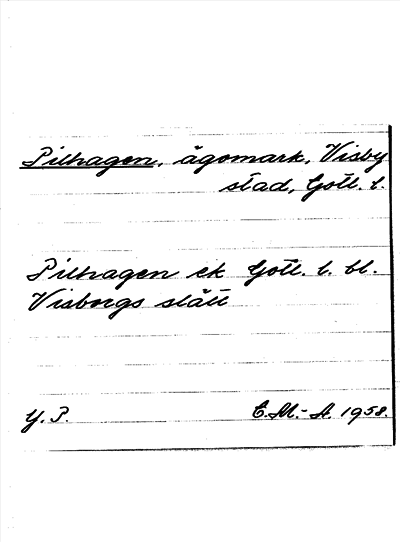 Pilhagen, ägomark, Visby
stad, Gotl. l.
Pilhagen ek Gotl. l. bl.
Visborgs slätt
Y. P.
E.M.-A. 1958.